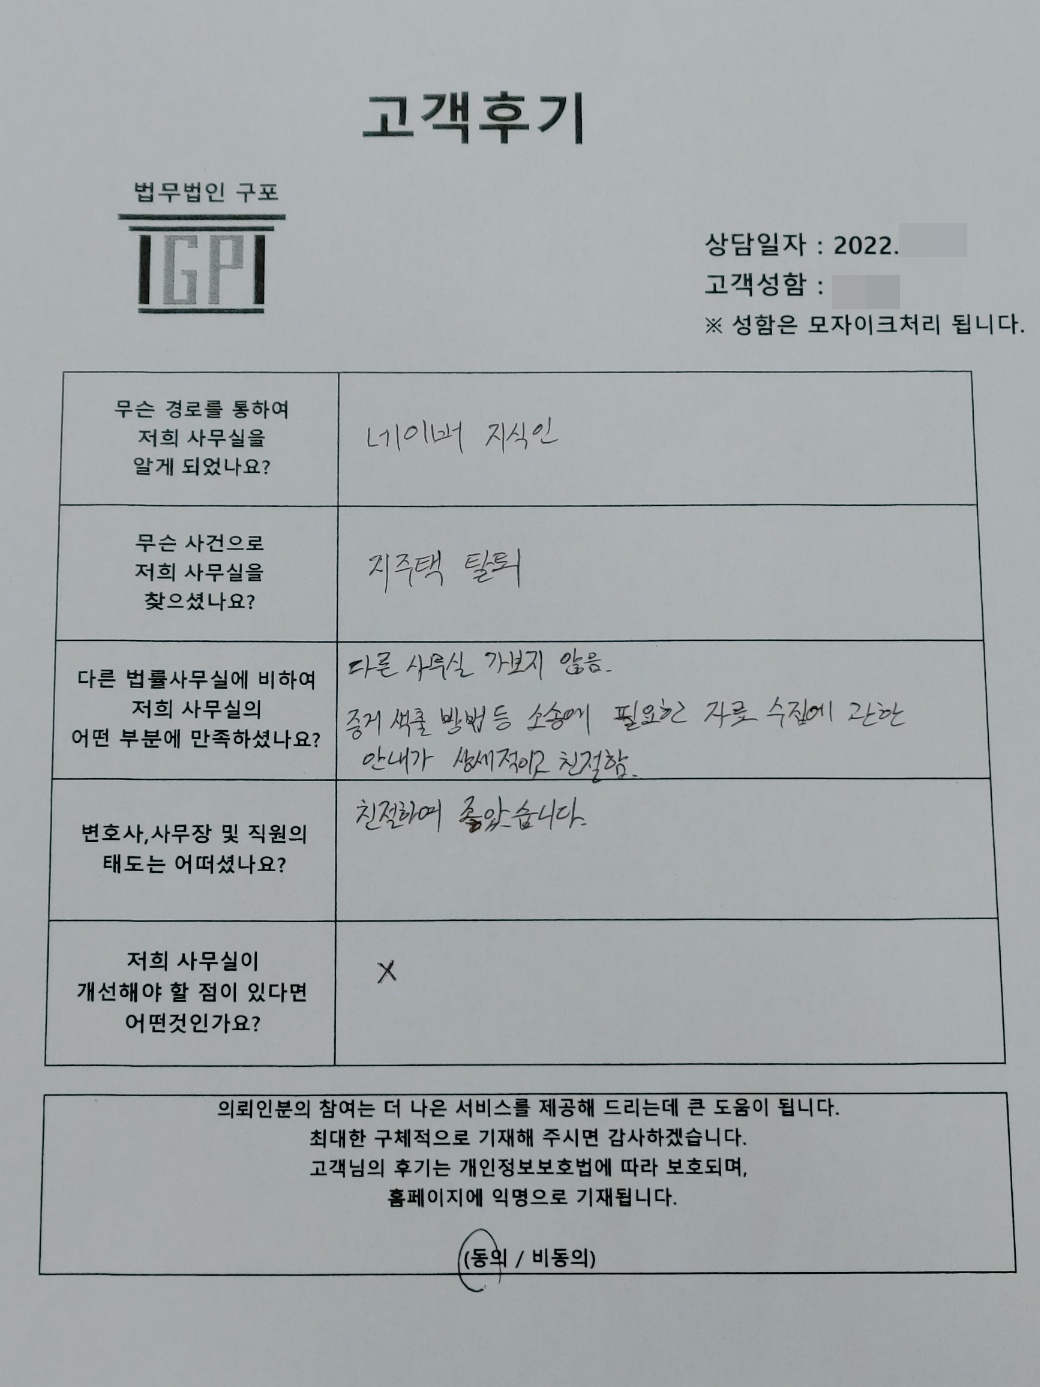 고객후기
법무법인 구포
GP
상담일자 : 2022.
고객성함 :
※ 성함은 모자이크처리 됩니다.
무슨 경로를 통하여
저희 사무실을
알게 되었나요?
네이버 지식인
무슨 사건으로
저희 사무실을
찾으셨나요?
지주택 탈퇴
다른 법률사무실에 비하여
저희 사무실의
어떤 부분에 만족하셨나요?
다른 사무실 가보지 않음.
증거 색출 방법 등 소송에 필요한 자료 수집에 관한
안내가 상세적이고 친절함.
변호사,사무장 및 직원의
태도는 어떠셨나요?
친절하여 좋았습니다.
저희 사무실이
개선해야 할 점이 있다면
어떤것인가요?
X
의뢰인분의 참여는 더 나은 서비스를 제공해 드리는데 큰 도움이 됩니다.
최대한 구체적으로 기재해 주시면 감사하겠습니다.
고객님의 후기는 개인정보보호법에 따라 보호되며,
홈페이지에 익명으로 기재됩니다.
(동의 / 비동의)